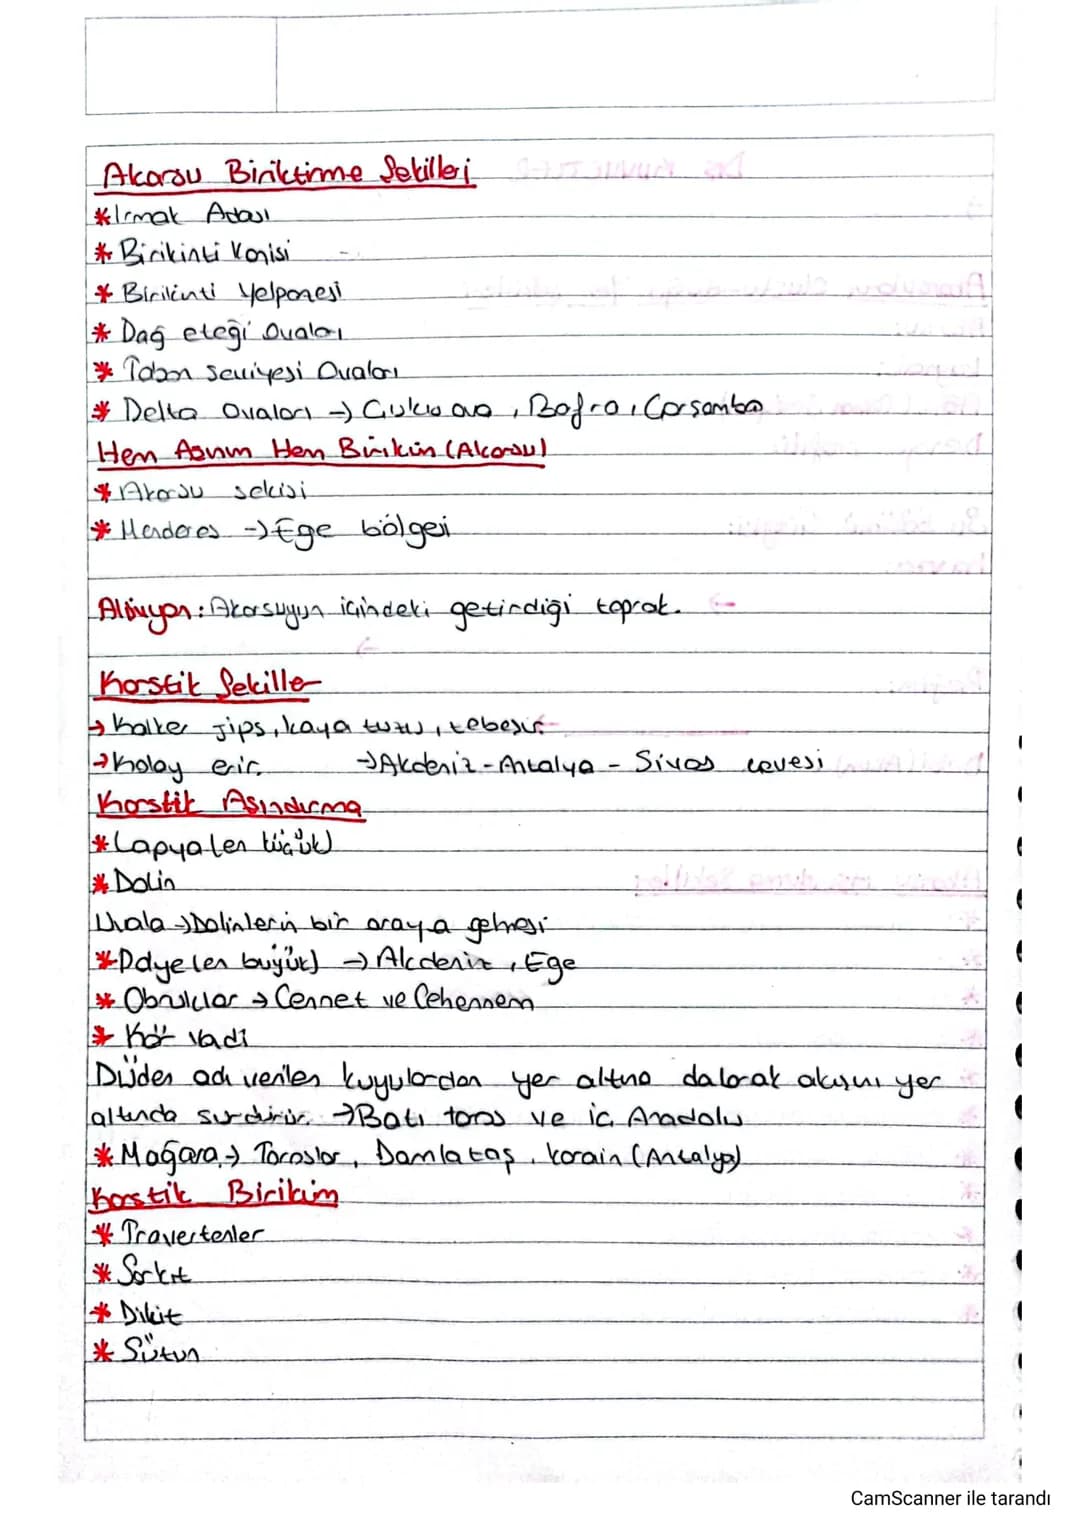 Akarsu Biriktirme Şekilleri
* Irmak Adası
* Birikinti Konisi
* Birikinti Yelpazesi
* Dağ eteği Ovaları
* Taban seviyesi Ovaları
* Delta Ovaları → Çukurova, Bafra, Çarşamba
Hem Aşınım Hem Birikim (Akarsu)
* Akarsu sekisi
* Menderes → Ege bölgesi
Alüvyon: Akarsuyun içindeki getirdiği toprak.
Karstik Şekiller
→ Kalker jips, kaya tuzu, tebeşir
→ Kolay erir. → Akdeniz - Antalya - Sivas çevesi
Karstik Aşındırma
* Lapya (en küçük)
* Dolin
Uvala → Dolinlerin bir araya gelmesi
* Polye (en büyük) → Akdeniz, Ege
* Obruklar → Cennet ve Cehennem
* Kör vadi
Düden adı verilen kuyulardan yer altına dalarak akışını yer
altında sürdürür. → Batı toros ve iç Anadolu
* Mağara → Toroslar, Damlataş, karain (Antalya)
Karstik Birikim
* Travertenler
* Sarkıt
* Dikit
* Sütun
CamScanner ile tarandı